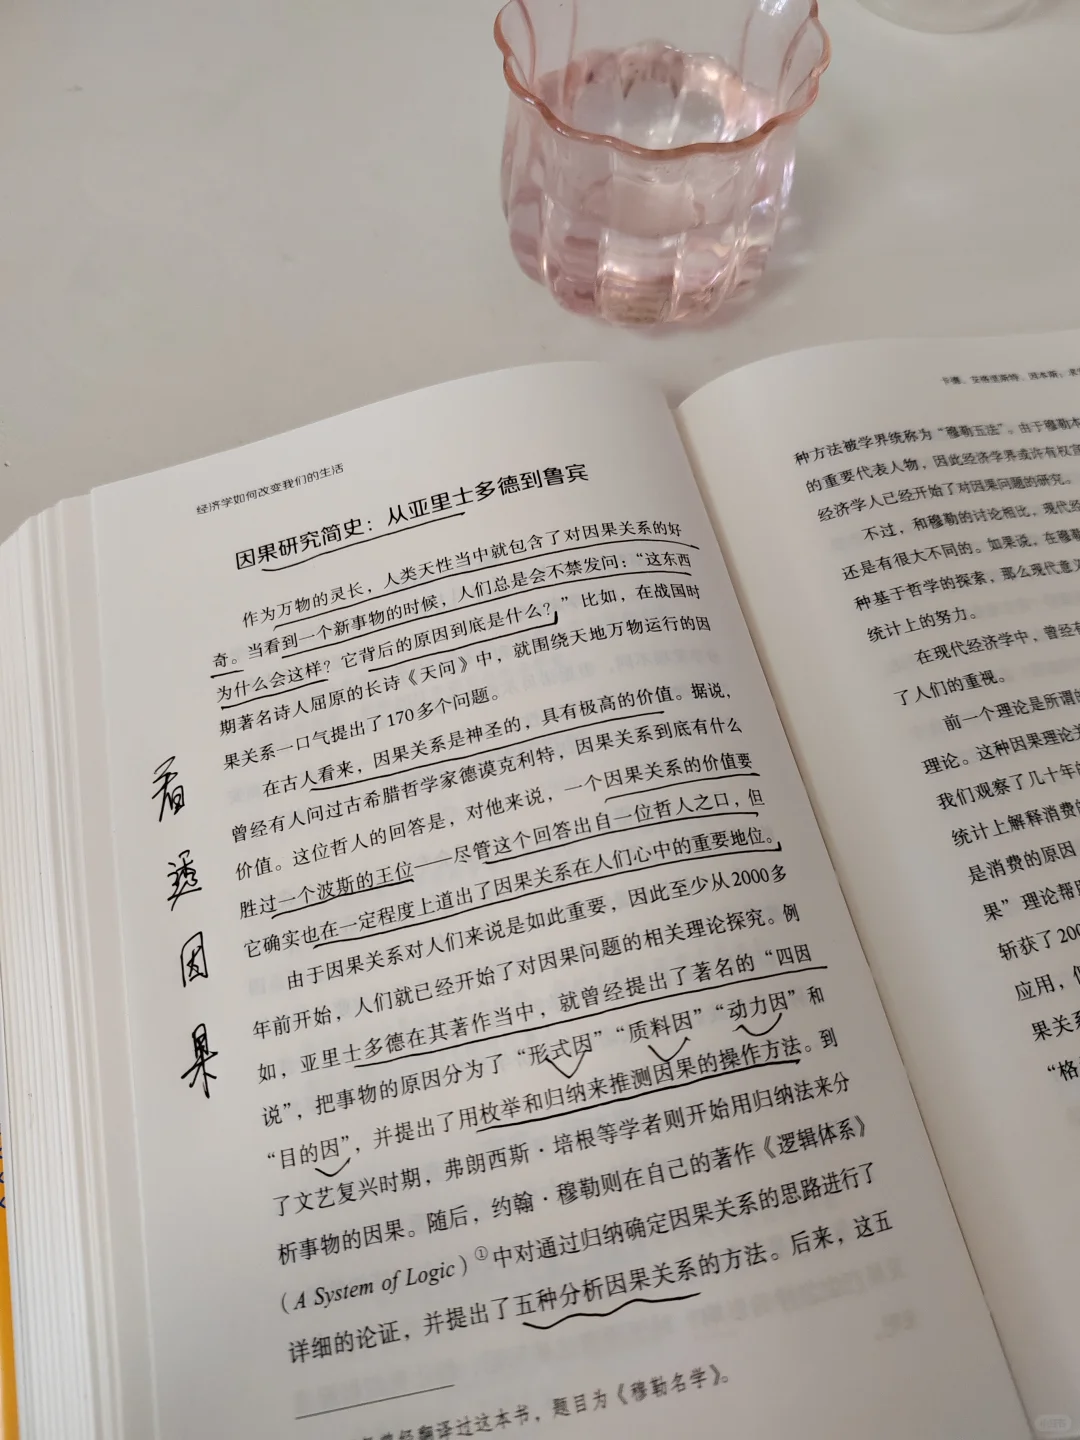 经济学如何改变我们的生活
因果研究简史：从亚里士多德到鲁宾
作为万物的灵长，人类天性当中就包含了对因果关系的好
奇。当看到一个新事物的时候，人们总是会不禁发问：“这东西
为什么会这样？它背后的原因到底是什么？”比如，在战国时
期著名诗人屈原的长诗《天问》中，就围绕天地万物运行的因
果关系一口气提出了170多个问题。
在古人看来，因果关系是神圣的，具有极高的价值。据说，
曾经有人问过古希腊哲学家德谟克利特，因果关系到底有什么
价值。这位哲人的回答是，对他来说，一个因果关系的价值要
胜过一个波斯的王位——尽管这个回答出自一位哲人之口，但
它确实也在一定程度上道出了因果关系在人们心中的重要地位。
由于因果关系对人们来说是如此重要，因此至少从2000多
年前开始，人们就已经开始了对因果问题的相关理论探究。例
如，亚里士多德在其著作当中，就曾经提出了著名的“四因
说”，把事物的原因分为了“形式因”“质料因”“动力因”和
“目的因”，并提出了用枚举和归纳来推测因果的操作方法。到
了文艺复兴时期，弗朗西斯·培根等学者则开始用归纳法来分
析事物的因果。随后，约翰·穆勒则在自己的著作《逻辑体系》
（A System of Logic）①中对通过归纳确定因果关系的思路进行了
详细的论证，并提出了五种分析因果关系的方法。后来，这五
翻译过这本书，题目为《穆勒名学》。
看
透
因
果
种方法被学界统称为“穆勒五法”。由于穆勒本
的重要代表人物，因此经济学界或许有权宣
经济学人已经开始了对因果问题的研究。
不过，和穆勒的讨论相比，现代经
还是有很大不同的。如果说，在穆勒
种基于哲学的探索，那么现代意义
统计上的努力。
在现代经济学中，曾经有
了人们的重视。
前一个理论是所谓的
理论。这种因果理论关
我们观察了几十年的
统计上解释消费的
是消费的原因
果”理论帮
斩获了200
应用，但
果关系
“格